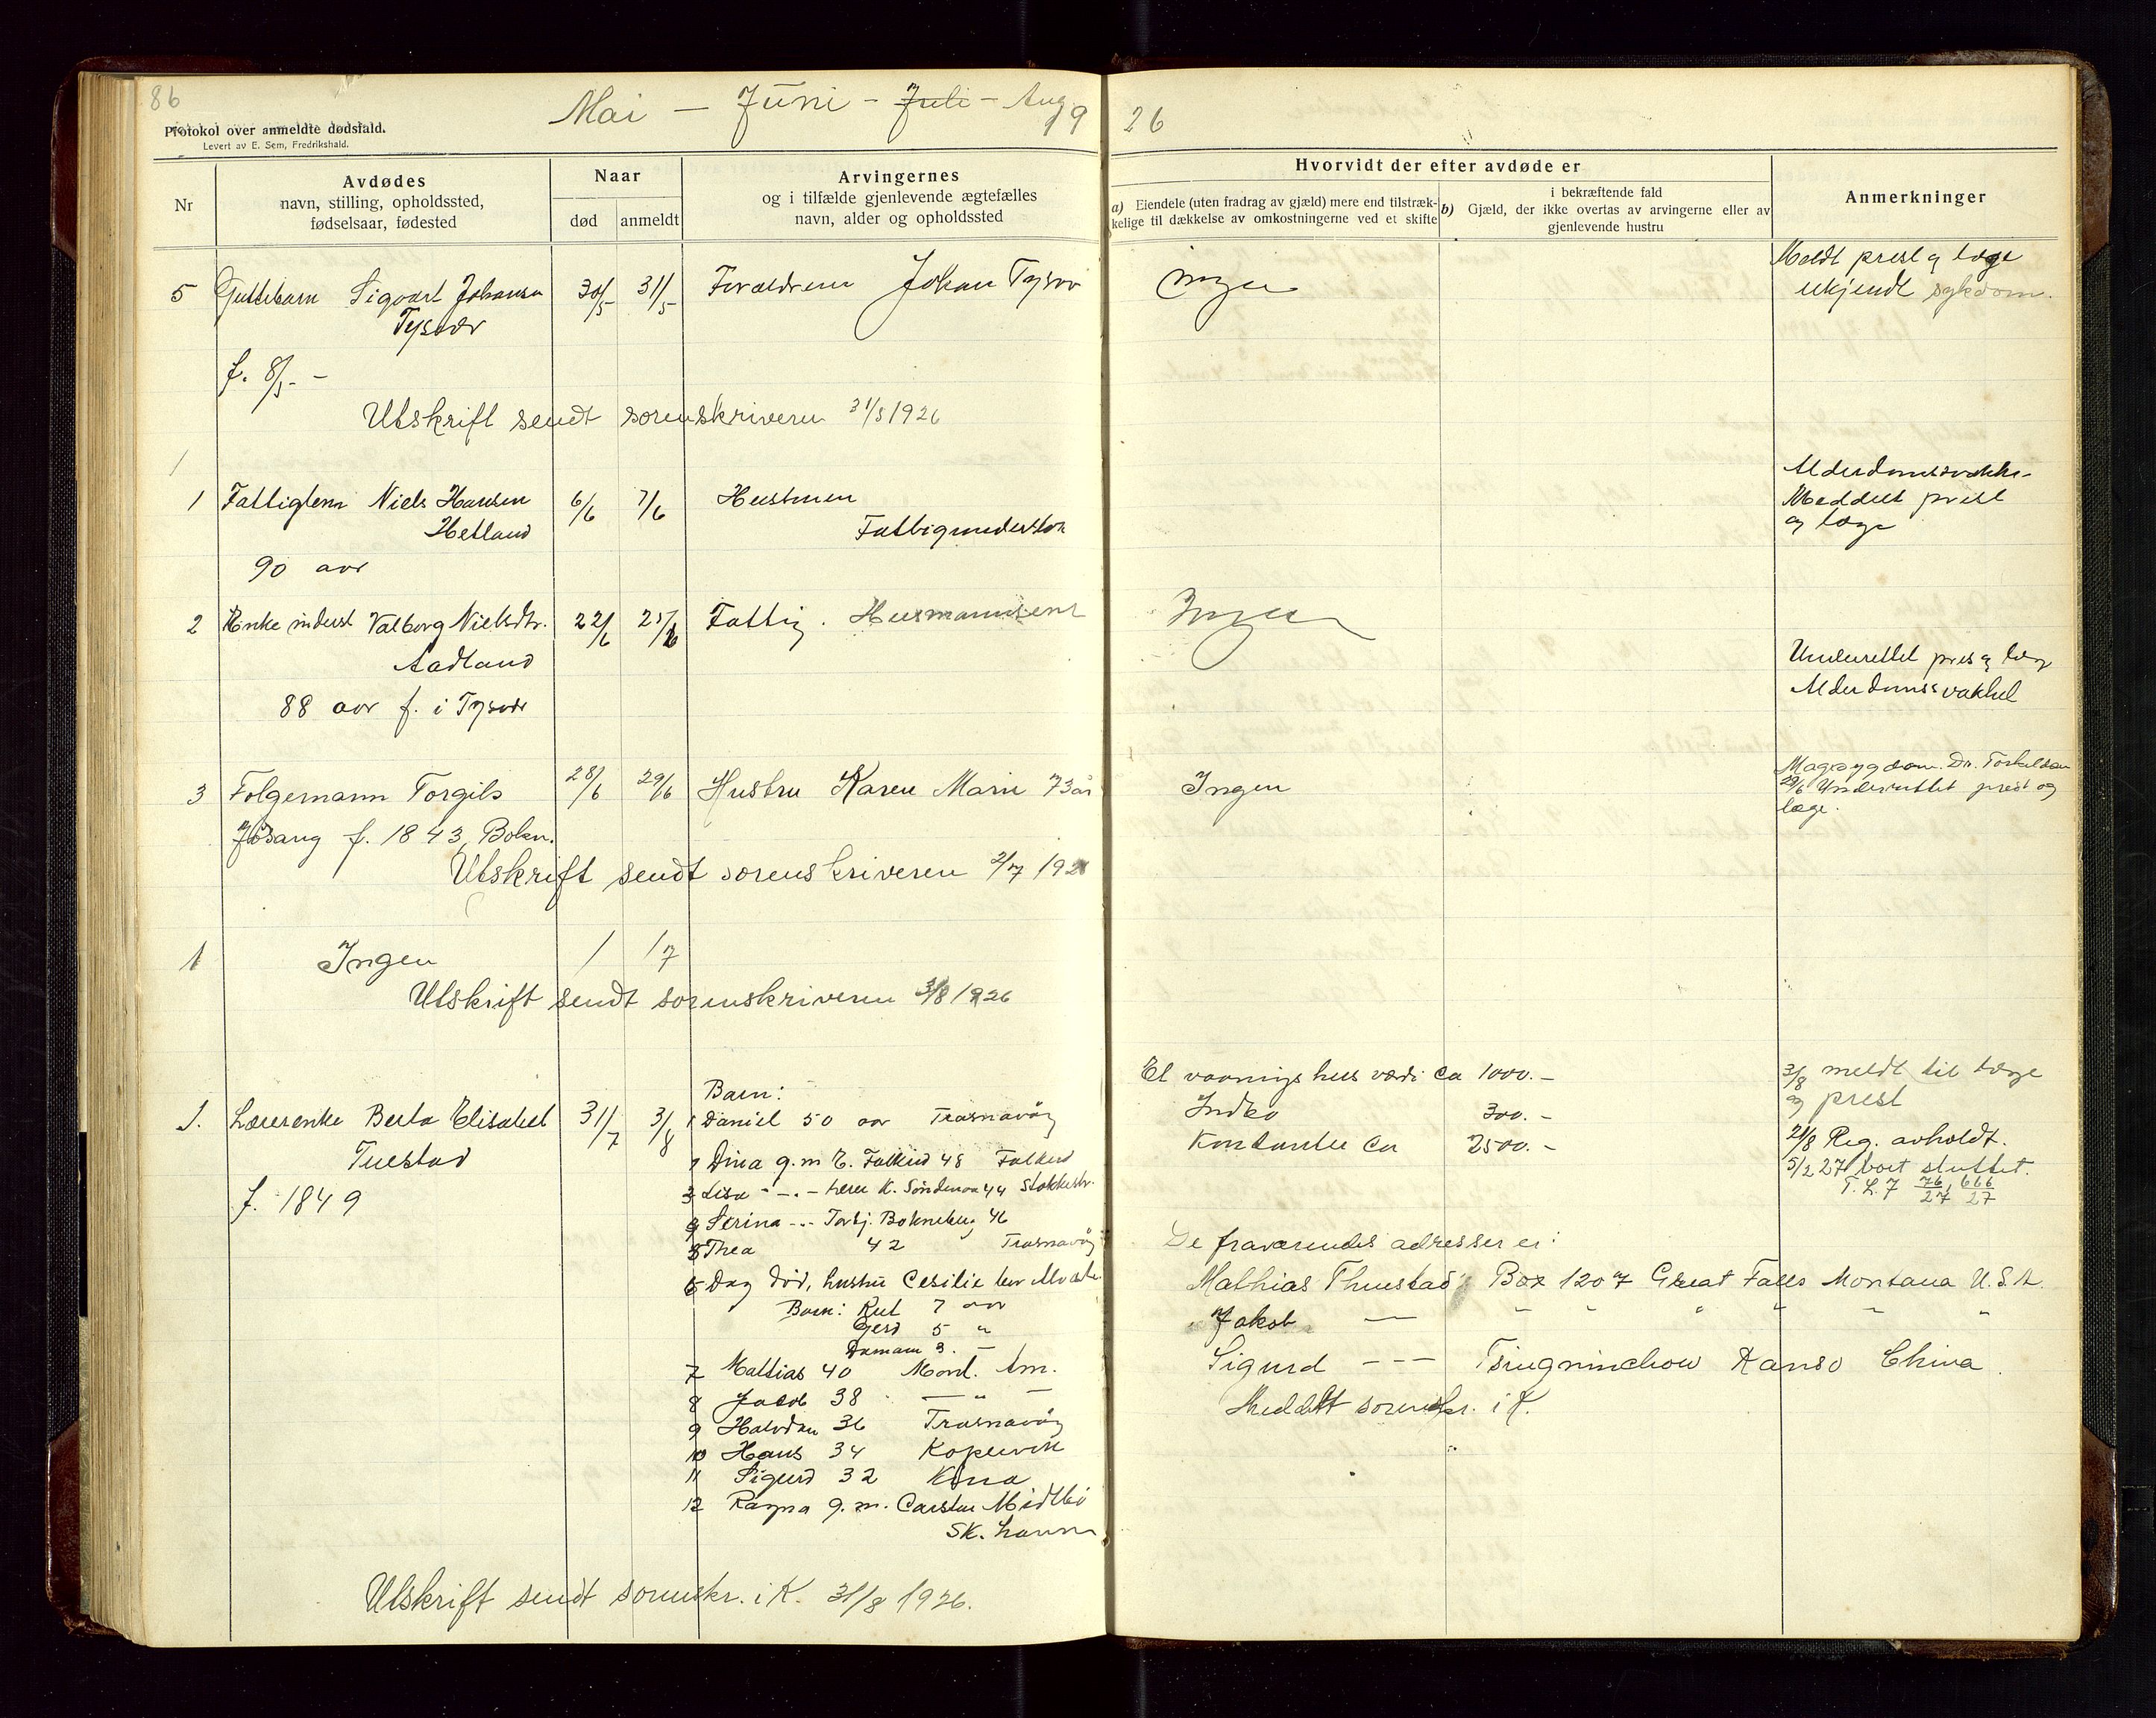 86
Mai – Juni – Juli – Aug 19 26
Protokol over anmeldte dødsfald.
Levert av E. Sem, Fredrikshald.
Nr
Avdødes
navn, stilling, opholdssted,
fødselsaar, fødested
Naar
død
anmeldt
Arvingernes
og i tilfælde gjenlevende ægtefælles
navn, alder og opholdssted
Hvorvidt der efter avdøde er
a) Eiendele (uten fradrag av gjæld) mere end tilstræk-
kelige til dækkelse av omkostningerne ved et skifte
i bekræftende fald
b) Gjæld, der ikke overtas av arvingerne eller av
gjenlevende hustru
Anmerkninger
5 Guttebarn Sigvart Johansen 30/5 31/5 Forældrene Johan Tysvær Ingen Meldt prest og læge
Tysvær ukjendt sykdom.
f. 8/5 -
Utskrift sendt sorenskriveren 31/5 1926
1 Fattiglem Niels Hansen 6/6 7/6 Hustruen Alderdomssvakhe-
Hetland Fattigunderstøt Meddelt prest
og læge
90 aar
2 Enke inderst Valborg Nielsdtr. 22/6 25/6 Fattig. Husmannsenk Ingen
Aadland Underrettet prest og læge
88 aar f. i Tysvær Alderdomssvakhet
3 Folgemann Torgils 28/6 29/6 Hustru Karen Marie 73 år Ingen Magesygdom. Dr. Torkelsen
Jøsang f. 1843, Bokn. 29/6 Underrettet prest og
læge.
Utskrift sendt sorenskriveren 2/7 192
1 Ingen / 17
Utskrift sendt sorenskriveren 3/8 1926
Barn: Et vaaningshus værdi ca 1000.– 3/8 meldt til læge
og prest
1. Lærerenke Berta Elisabet 31/7 3/8 1 Daniel 50 aar Træsnavåg Indbo 300.–
Tuestad Kontanter ca 2500.– 21/8 Reg. avholdt.
f. 1849 Dina g. m. E. Falkeid 48 Falkeid 5/2 27 bort sluttet.
3 Lisa – . – lærer K. Søndenaa 44 Stokkastr. T. L. 7 76/27, 666/27
4 Serina – – Torbj. Bokneberg 46
5 Thea 42 Træsnavåg De fraværendes adresser er:
6 Dag død, hustru Cesilie bor Mathias Thuestad Box 1207 Great Falls Montana U.S.A.
Barn: Rut 7 aar Jakob – " " " " " "
Gerd 5 "
3. – Sigurd – – – Tsingninchow Kanso China
7 Mattias 40 Mont. Am.
8 Jacob 38 – " – Meddelt sorenskr. i K.
9 Halvdan 36 Træsnavåg
10 Hans 34 Kopervik
11 Sigurd 32 Kina
12 Ragna g. m. Carsten Midtbø
Sk. havn
Utskrift sendt sorenskr. i K. 31/8 1926.